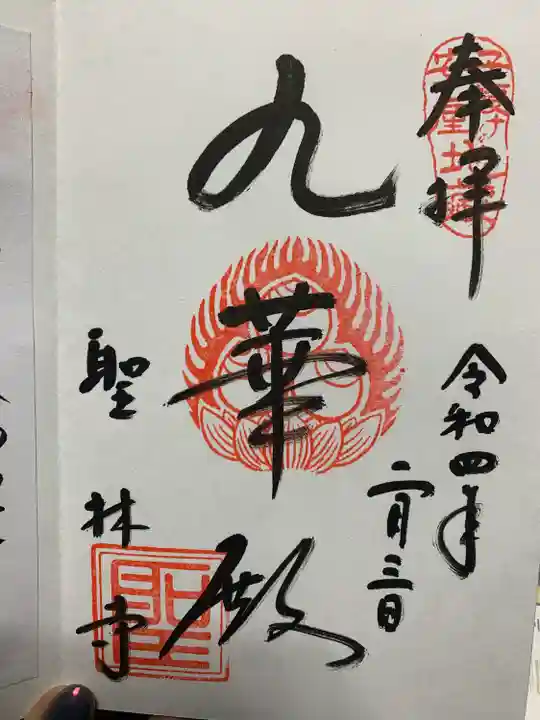 奉拝
令和四年
二月三日
九華殿
聖林寺